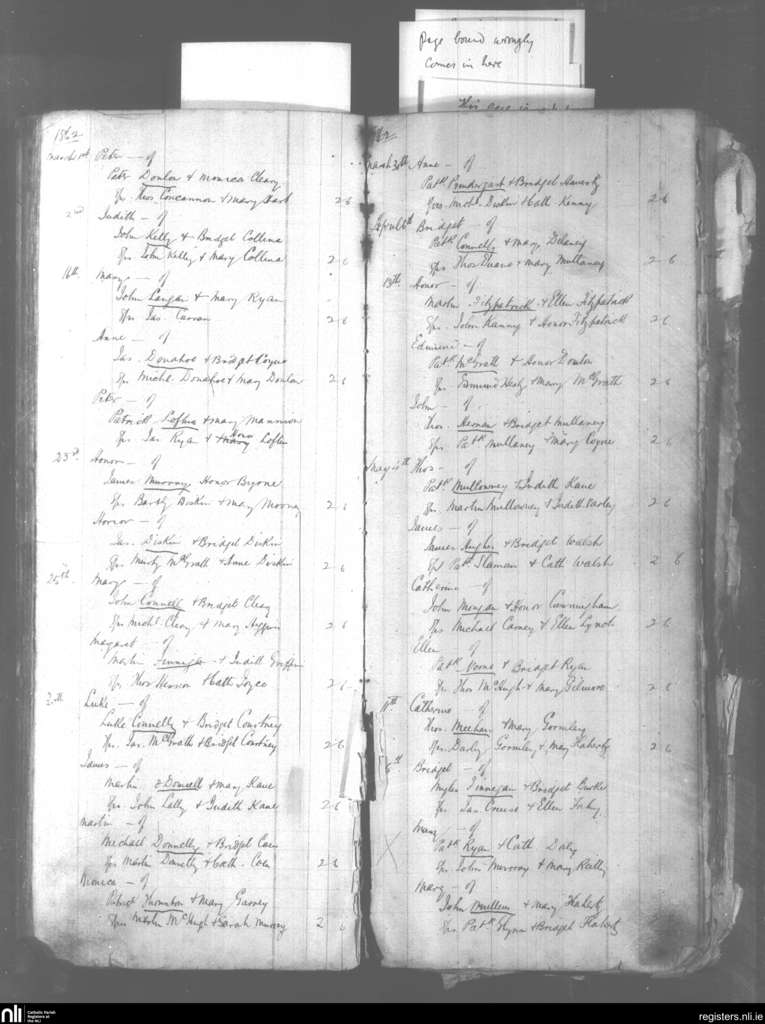 Page bound wrongly
comes in here
1862
March 1st Peter — of
Peter Donlon & Monica Cleary
Sps Thos Concannon & Mary Hart 2-6
2nd Judith — of
John Kelly & Bridget Collins
Sps John Kelly & Mary Collins 2-6
16th Mary — of
John Langan & Mary Ryan
Sps Jas. 2-6
Anne — of
Jas. Donahoe & Bridget Coyne
Sps Michl. Donahoe & Mary Donlon 2-6
Peter — of
Patrick Loftus & Mary Mannion
Sps Jas Ryan & Honor Loftus
23rd Honor — of
James Murray Honor Byrne
Sps Bartly Diskin & Mary Mooney 2-6
Honor — of
Jas. Diskin & Bridget Diskin
Sps Murty McGrath & Anne Diskin 2-6
25th Mary — of
John Connelly & Bridget Cleary
Sps Michl. Cleary & Mary Higgins 2-6
Margaret of
Martin Finnegan & Judith Griffin
Sps Thos & Cath Joyce 2-6
Luke — of
Luke Connelly & Bridget Courtney
Sps. Jas. McGrath & Bridget Courtney 2-6
James — of
Martin O'Donnell & Mary Kane
Sps. John Lally & Judith Kane 2-6
Martin — of
Michael Donnelly & Bridget Coen
Sps Martin Donnelly & Cath. Coen 2-6
Monica — of
Patrick Thornton & Mary Garvey
Sps Martin McHugh & Sarah Murray 2 6
March 30th Anne — of
Patk Prendergast & Bridget Haverty
Sps Michl. Diskin & Cath Kenny 2-6
April 6th Bridget — of
Patk Connelly & Mary Delaney
Sps Thos Duane & Mary Mullaney 2-6
13th Honor — of
Martin Fitzpatrick & Ellen Fitzpatrick
Sps. John Kenny & Honor Fitzpatrick 2-6
Edmund — of
Patk McGrath & Honor Donlon
Sps Edmund Healy & Mary McGrath 2-6
John — of
Thos. Hernon & Bridget Mullaney
Sps Patk Mullaney & Mary Coyne 2-6
May Thos — of
Patk Mullowney & Judith Kane
Sps Martin Mullowney & Judith Varley 2-6
James — of
James Hughes & Bridget Walsh
Sps Patk Slaman & Cath Walsh 2 6
Catherine — of
John Morgan & Honor Cunningham
Sps Michael Carney & Ellen Lynch 2-6
Ellen of
Patk & Bridget Ryan
Sps Thos McHugh & Mary Gilmore 2-6
11th Catherine — of
Thos. Meehan & Mary Gormley
Sps Darby Gormley & Mary Flaherty 2-6
Bridget — of
Myles Finnegan & Bridget Burke
Sps Jas Creese & Ellen Fahy
Mary — of
Patk Ryan & Cath Daly
Sps John Murray & Mary Reilly
Mary — of
John Mullen & Mary Flaherty
Sps Patk Glynn & Bridget Flaherty
nli Catholic Parish
Registers at
the NLI
registers.nli.ie